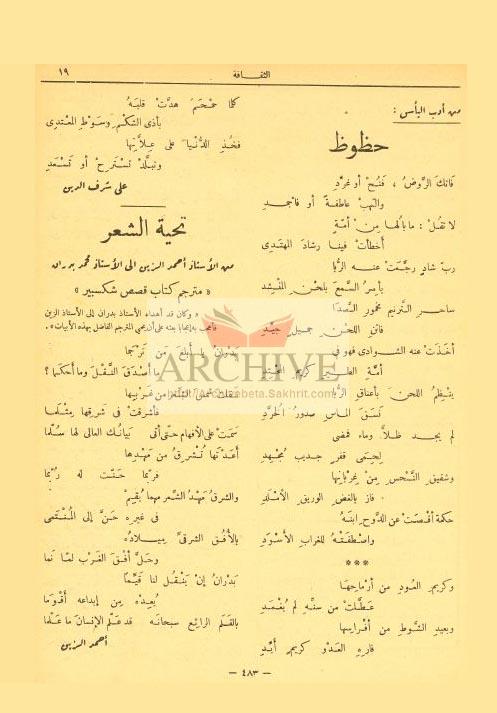 ١٩
الثقافة
من أدب اليأس :
حظوظ
فاتك الروْضُ ، فَنُحْ أو غرِّدِ
والتهبْ عاطفةً أو فاجمدِ
لا تقلْ : ما بالُها مِنْ أمّةٍ
أخطأتْ فينا رشادَ المهتدِي
ربّ شادٍ رجَّعَتْ عنه الرُّبا
يأسِرُ السَّمعَ بلحْنِ المُنْشِدِ
ساحر الترنيم مخمور الصَّدَا
فاتنِ اللحْنِ جميلٍ جيِّدِ
أخَذَتْ عنه الشوادي فهو في
أمّةِ الطير كريم
ينْظِمُ اللحن بأعناقِ الرُّبا
كنَسَقِ الماسِ صدورَ الخُرَّدِ
لم يجد ظلاًّ وماء فمضى
لِحِمَى قفرٍ جديبٍ مُجْهِدِ
وشقيق النَّحْسِ مِنْ غِرْبانِها
فاز بالغضِّ الوريقِ الأمْلَدِ
حكمة أقْصَتْ عن الدَّوحِ ابنَهُ
واصْطَفَتْهُ للغرابِ الأسْوَدِ
***
وكريم العودِ من أرماحِها
عَطَّلَتْ من سنِّه لم يُغْمَدِ
وبعيدِ الشوطِ من أفراسِها
فارِهِ العَدْوِ كريمٍ أيِّدِ
كلما حَمْحَمَ هدَّتْ قلبَهُ
بأذى الشكْمِ وسَوْطِ المعْتدِى
فخُذِ الدُّنْيا على عِلاَّتِها
وتبلَّدْ تستَرِحْ أو تَسْعَدِ
على شرف الدين
تحية الشعر
من الأستاذ أحمد الزين الى الأستاذ محمد بدران
« مترجم كتاب قصص شكسبير »
« وكان قد أهداه الأستاذ بدران إلى الأستاذ الزين
بدرانُ يا أبلغَ من تَرْجَما
ما أصْدَقَ النَّقْلَ وما أحكما ؟
من غربِها
فأشرقتْ في شرقِها مِثْلَما
سَمَتْ على الأفهامِ حتّى أتى بيانُك العالى لها سُلَّما
أعدْتَها تُشْرِقُ من مَهْدِها
فربّما حنّتْ له رُبَّما
والشرقُ مَهْدُ الشِّعرِ مهما يُقِمْ
في غيرِه حَنَّ إلى المُنْتَمَى
بالأفُقِ الشرقيِّ ميلادُه
وحلَّ أفقَ الغَرْبِ لمّا نما
بدرانُ إنْ يَنْقُلْ لنا قَيِّماً
يُعِدْهُ من إبداعه أقْوَما
بالقَلَمِ الرائِعِ سبحانَه قد علّم الإنسانَ ما عَلَّما
أحمد الزين
— ٤٨٣ —
ARCHIVE
http://Archivebeta.Sakhrit.com